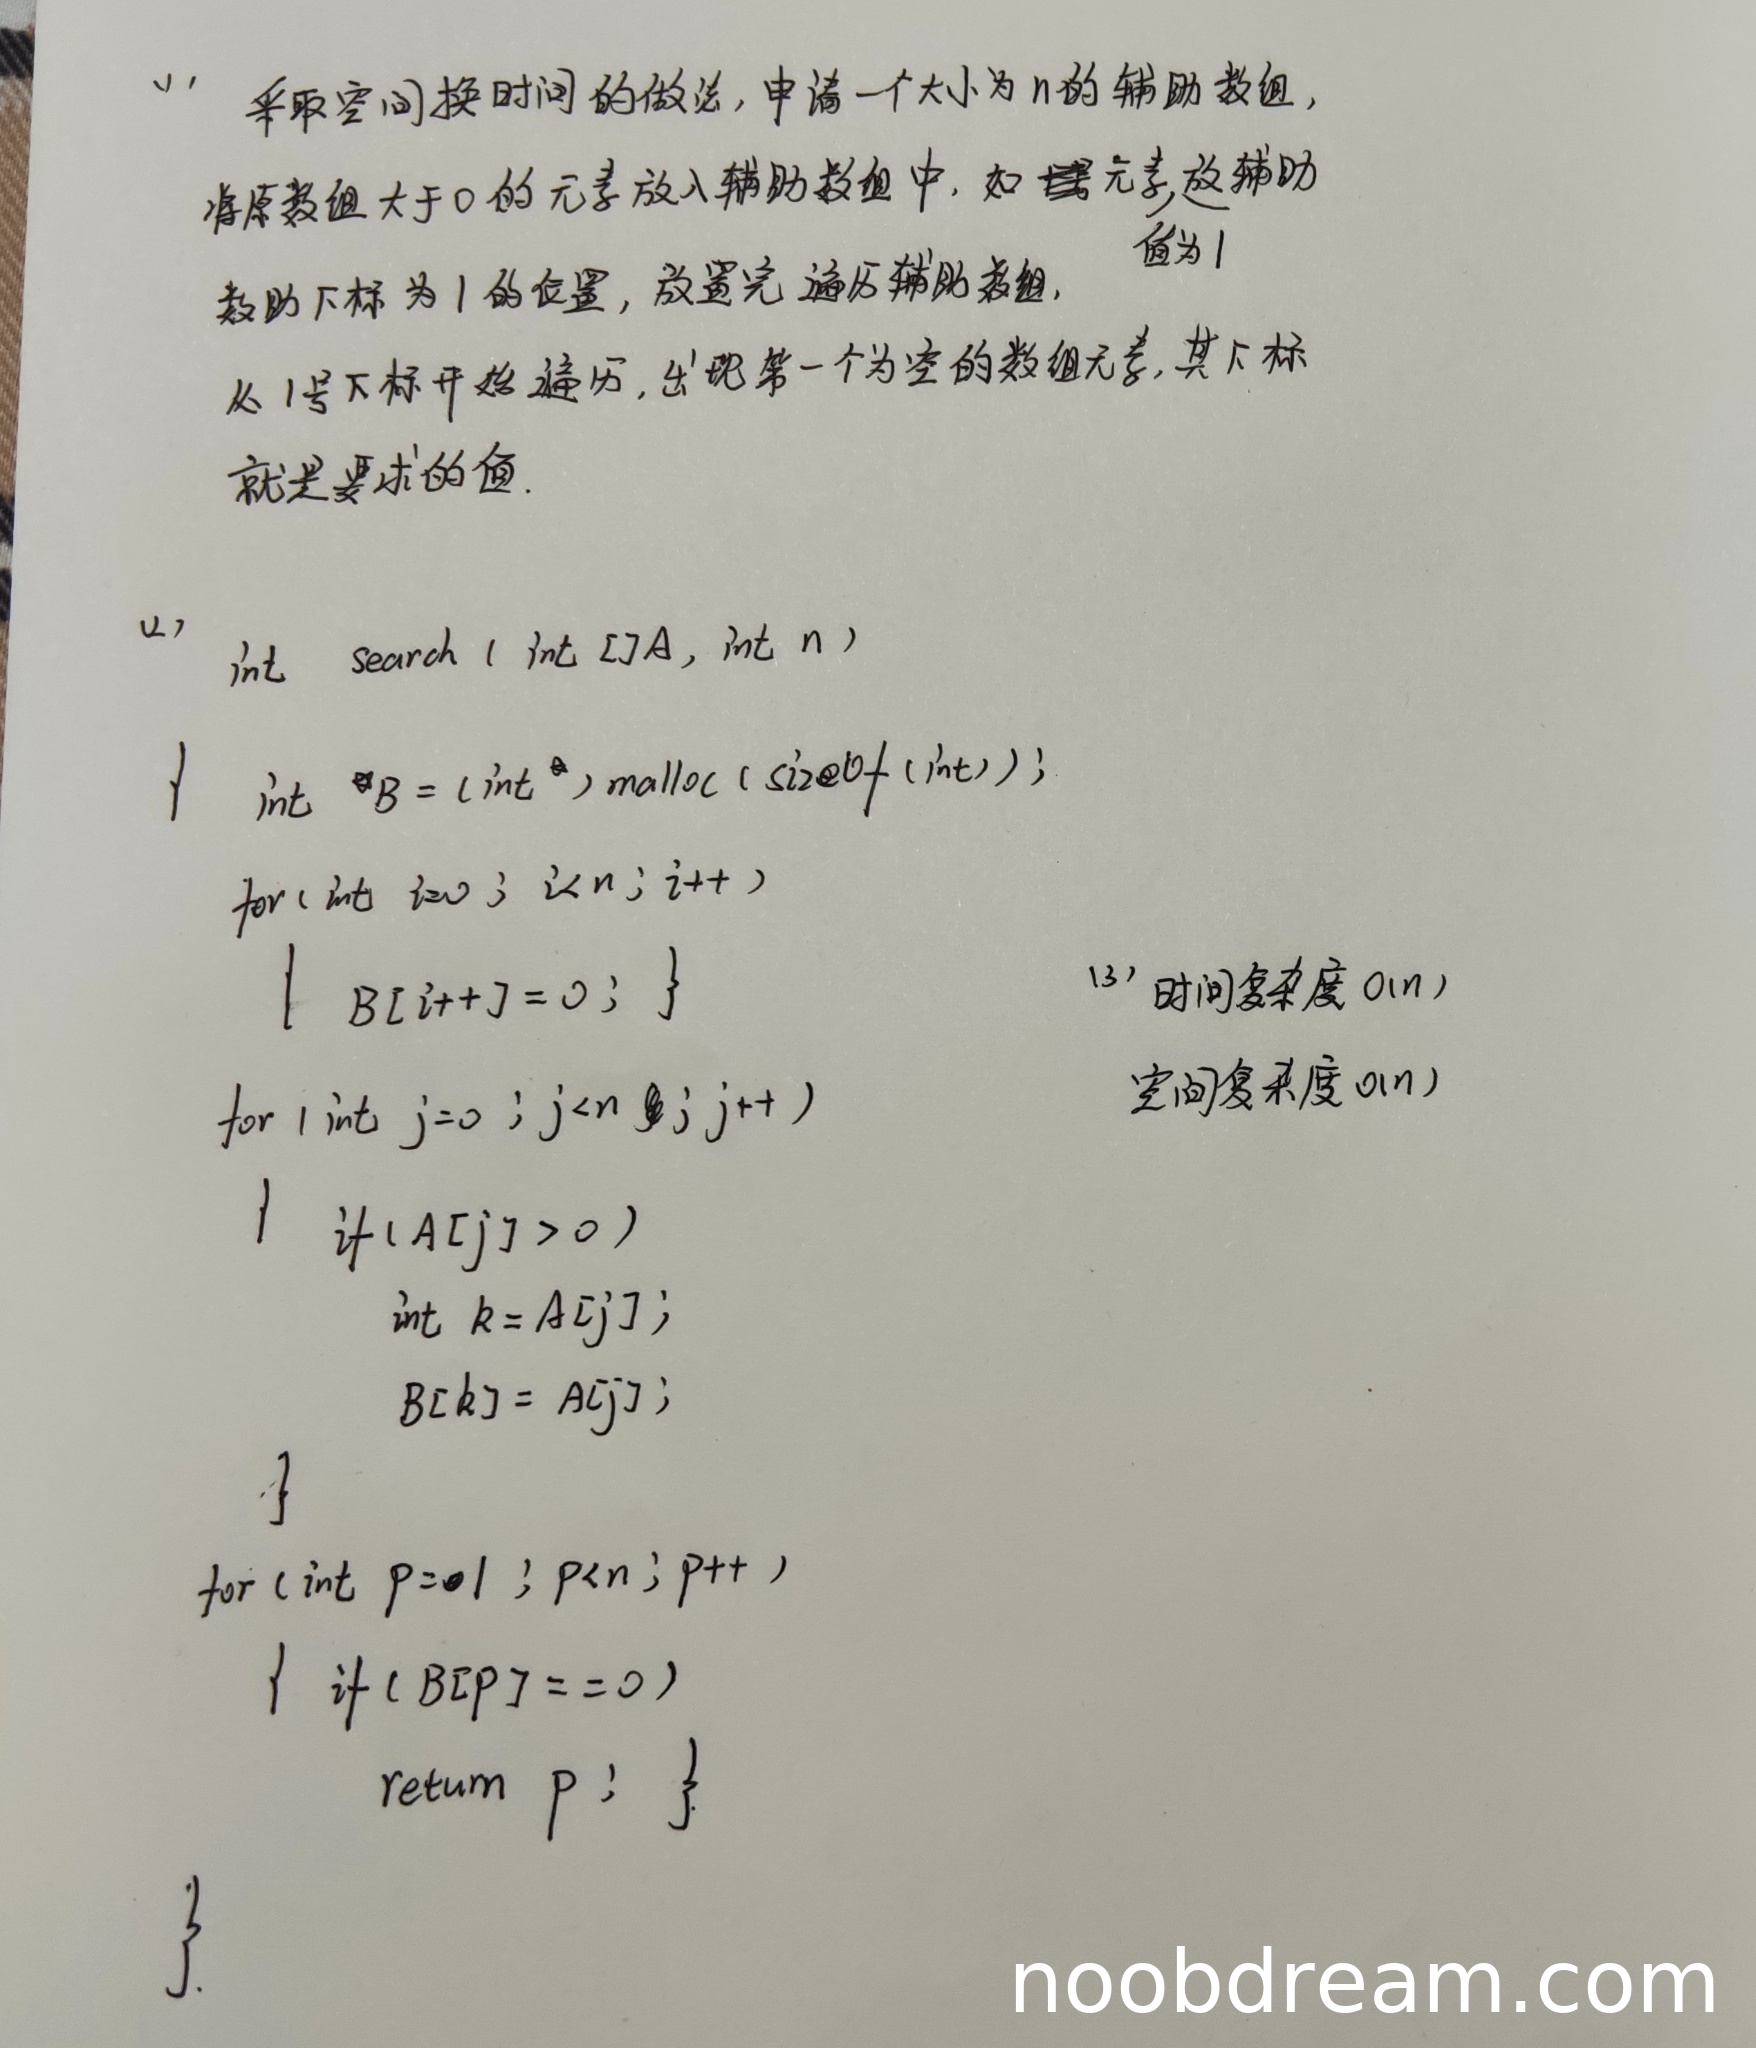 (1) 采取空间换时间的做法,申请一个大小为n的辅助数组,
将原数组大于0的元素放入辅助数组中.如元素值为1放辅助
数助下标为1的位置,放置完遍历辅助数组,
从1号下标开始遍历,出现第一个为空的数组元素,其下标
就是要求的值.
(2) int search(int []A, int n)
{ int *B=(int *)malloc(sizeOf(int));
for(int i=0; i<n; i++)
{ B[i++]=0; }
for(int j=0; j<n; j++)
{ if(A[j]>0)
int k=A[j];
B[k]=A[j];
}
for(int p=1; p<n; p++)
{ if(B[p]==0)
return p; }
}.
(3) 时间复杂度O(n)
空间复杂度O(n)
noobdream.com